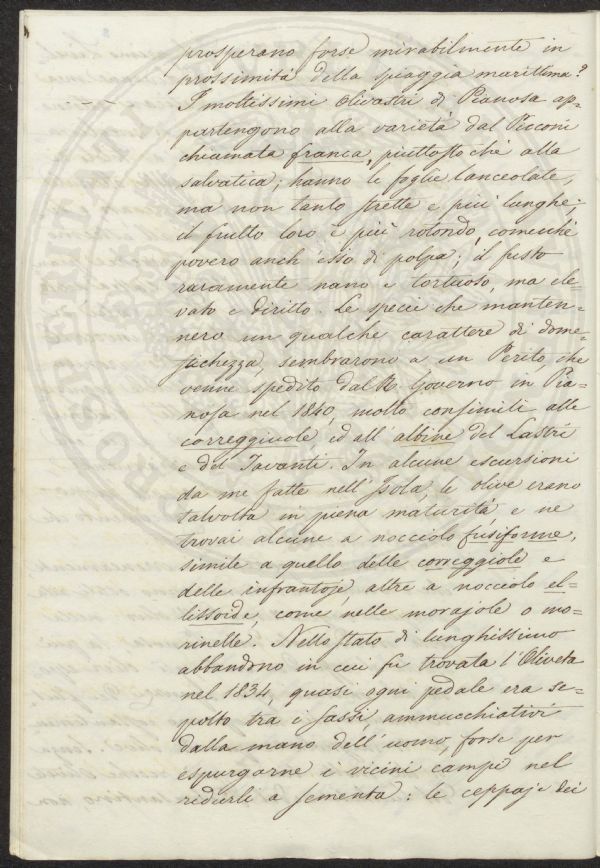 prosperano forse mirabilmente in
prossimità della spiaggia marittima?
I moltissimi Olivastri di Pianosa ap-
partengono alla varietà dal Picconi
chiamata franca, piuttosto chè alla
salvatica; hanno le foglie lanceolate,
ma non tanto strette e più lunghe;
il frutto loro è più rotondo, comechè
povero anch'esso di polpa; il fusto
raramente nano e tortuoso, ma ele-
vato e diritto. Le specie che manten-
nero un qualche carattere di dome-
stichezza, sembrarono a un Perito, che
venne spedito dal R. Governo in Pia-
nosa nel 1840, molto consimili alle
correggiuole ed all'albine del Lastri
e del Tavanti. In alcune escursioni
da me fatte nell'Isola, le olive erano
talvolta in piena maturità, e ne
trovai alcune a nocciolo fusiforme,
simile a quello delle correggiole e
delle infrantoje, altre a nocciolo el-
lissoide, come nelle morajole o mo-
rinelle. Nello stato di lunghissimo
abbandono in cui fu trovata l'Oliveta
nel 1834, quasi ogni pedale era se-
polto tra i sassi, ammucchiativi
dalla mano dell'uomo, forse per
espurgarne i vicini campi nel
ridurli a sementa: le ceppaje dei